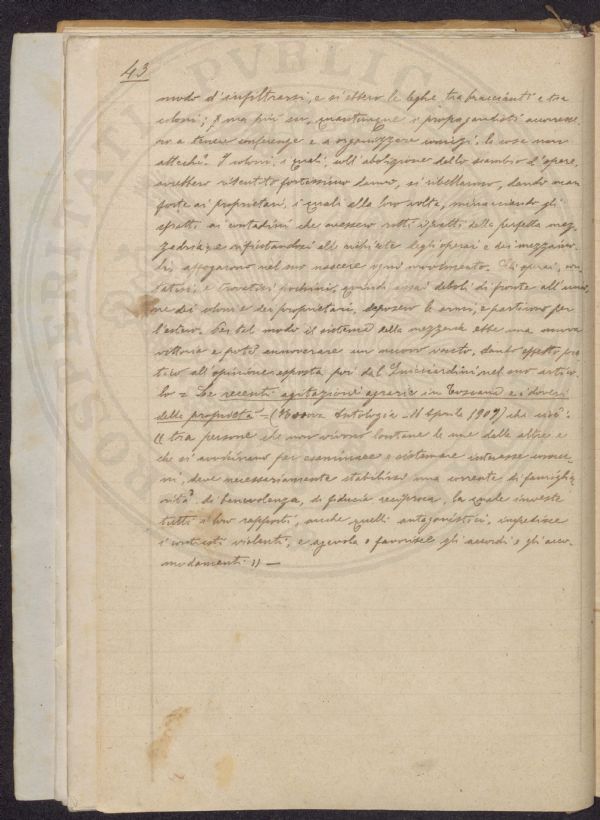 43
modo d'infiltrarsi, e si ebbero le leghe tra braccianti e tra
coloni; ma per quantunque i propagandisti accorresse
ro a tenere conferenze e a organizzare comizi, la cosa non
attecchì. I coloni, i quali, coll'abolizione dello scambio d'opere,
avrebbero risentito fortissimo danno, si ribellarono, dando man
forte ai proprietari, i quali alla loro volta, minacciando gli
sfratti ai contadini che avessero rotti i patti della perfetta mez-
zadria, e rifiutandosi alle richieste degli operai e dei mezzaiuo-
li, affogarono nel suo nascere ogni movimento. Gli operai,
e trovatisi pochini, quindi assai deboli di fronte all'unio-
ne dei coloni e dei proprietari, deposero le armi, e partirono per
l'estero. In tal modo il sistema della mezzeria ebbe una nuova
vittoria e potè annoverare un nuovo vanto, dando effetto pra-
tico all'opinione esposta poi dal Guicciardini nel suo artico-
lo = Le recenti agitazioni agrarie in Toscana e i doveri
della proprietà = (Nuova Antologia - 16 Aprile 1907) che cioè:
(( tra persone che non vivono lontane le une dalle altre e
che si avvicinano per esaminare e sistemare interesse comu-
ni, deve necessariamente stabilirsi una corrente di famiglia-
rità, di benevolenza, di fiducia reciproca, la quale investe
tutti i loro rapporti, anche quelli antagonistici, impedisce
i contrasti violenti, e agevola e favorisce gli accordi e gli acco-
modamenti )) —